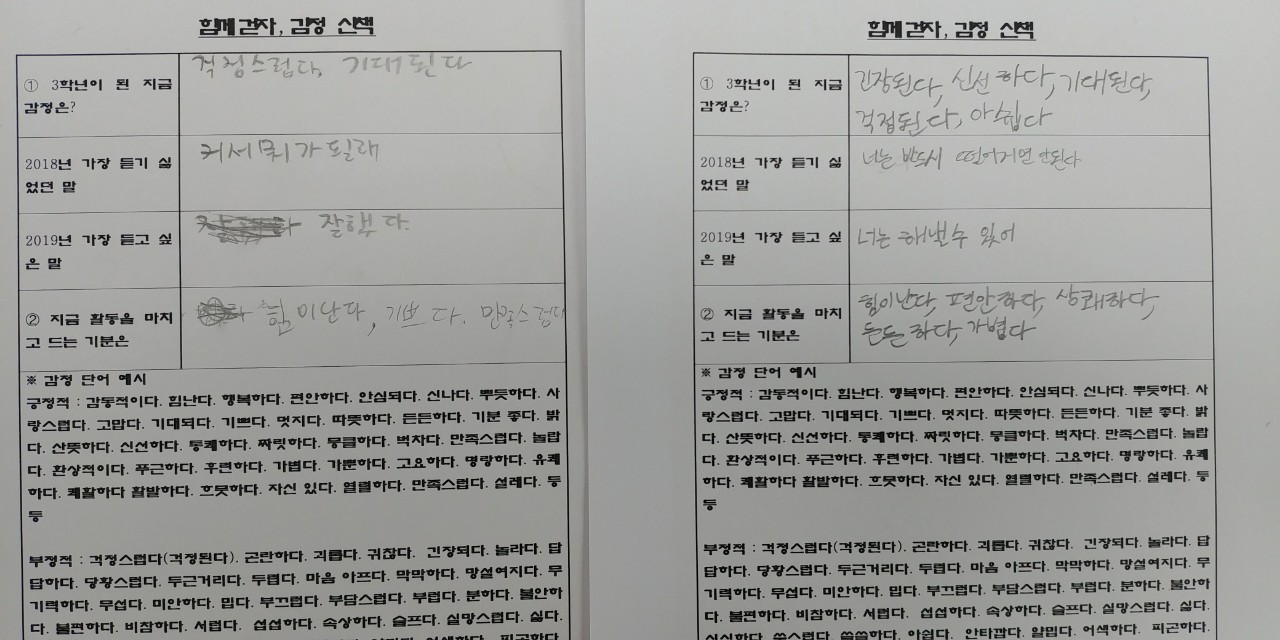 함께 걷자, 감정 산책
① 3학년이 된 지금
감정은?
걱정스럽다. 기대된다
2018년 가장 듣기 싫
었던 말
커서 뭐가 될래
2019년 가장 듣고 싶
은 말
잘했다.
② 지금 활동을 마치
고 드는 기분은
힘이난다, 기쁘다. 만족스럽다
※ 감정 단어 예시
긍정적 : 감동적이다. 힘난다. 행복하다. 편안하다. 안심되다. 신나다. 뿌듯하다. 사
랑스럽다. 고맙다. 기대되다. 기쁘다. 멋지다. 따뜻하다. 든든하다. 기분 좋다. 밝
다. 산뜻하다. 신선하다. 통쾌하다. 짜릿하다. 뭉클하다. 벅차다. 만족스럽다. 놀랍
다. 환상적이다. 푸근하다. 후련하다. 가볍다. 가뿐하다. 고요하다. 명랑하다. 유쾌
하다. 쾌활하다 활발하다. 흐뭇하다. 자신 있다. 열렬하다. 만족스럽다. 설레다. 등
등
부정적 : 걱정스럽다(걱정된다). 곤란하다. 괴롭다. 귀찮다. 긴장되다. 놀라다. 답
답하다. 당황스럽다. 두근거리다. 두렵다. 마음 아프다. 막막하다. 망설여지다. 무
기력하다. 무섭다. 미안하다. 밉다. 부끄럽다. 부담스럽다. 부럽다. 분하다. 불안하
다. 불편하다. 비참하다. 서럽다. 섭섭하다. 속상하다. 슬프다. 실망스럽다. 싫다.
어색하다. 피곤하다.
함께 걷자, 감정 산책
① 3학년이 된 지금
감정은?
긴장된다, 신선하다, 기대된다,
걱정된다, 아쉽다
2018년 가장 듣기 싫
었던 말
너는 반드시 떨어지면 안된다
2019년 가장 듣고 싶
은 말
너는 해낼수 있어
② 지금 활동을 마치
고 드는 기분은
힘이난다, 편안하다, 상쾌하다,
든든하다, 가볍다
※ 감정 단어 예시
긍정적 : 감동적이다. 힘난다. 행복하다. 편안하다. 안심되다. 신나다. 뿌듯하다. 사
랑스럽다. 고맙다. 기대되다. 기쁘다. 멋지다. 따뜻하다. 든든하다. 기분 좋다. 밝
다. 산뜻하다. 신선하다. 통쾌하다. 짜릿하다. 뭉클하다. 벅차다. 만족스럽다. 놀랍
다. 환상적이다. 푸근하다. 후련하다. 가볍다. 가뿐하다. 고요하다. 명랑하다. 유쾌
하다. 쾌활하다 활발하다. 흐뭇하다. 자신 있다. 열렬하다. 만족스럽다. 설레다. 등
등
부정적 : 걱정스럽다(걱정된다). 곤란하다. 괴롭다. 귀찮다. 긴장되다. 놀라다. 답
답하다. 당황스럽다. 두근거리다. 두렵다. 마음 아프다. 막막하다. 망설여지다. 무
기력하다. 무섭다. 미안하다. 밉다. 부끄럽다. 부담스럽다. 부럽다. 분하다. 불안하
다. 불편하다. 비참하다. 서럽다. 섭섭하다. 속상하다. 슬프다. 실망스럽다. 싫다.
심심하다. 쓸쓸하다. 아쉽다. 안타깝다. 얄밉다. 어색하다. 피곤하다.